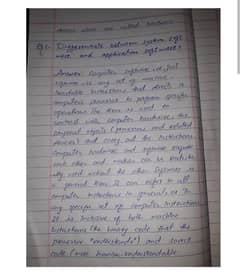 Q1. Differentiate between system soft
ware and application software?
Answer Computer software or just
software is any set of machine-
readable instructions that directs a
computer's processor to perform specific
operations. The term is used to
contrast with computer hardware, the
physical objects (processor and related
devices) that carry out the instructions
Computer hardware and software require
each other and neither can be realistic
ally used without the other. Software is
a general term. It can refer to all
computer instructions in general or to
any specific set of computer instructions
It is inclusive of both machine
instructions (the binary code that the
processor "understands") and source
code (more human-understandable